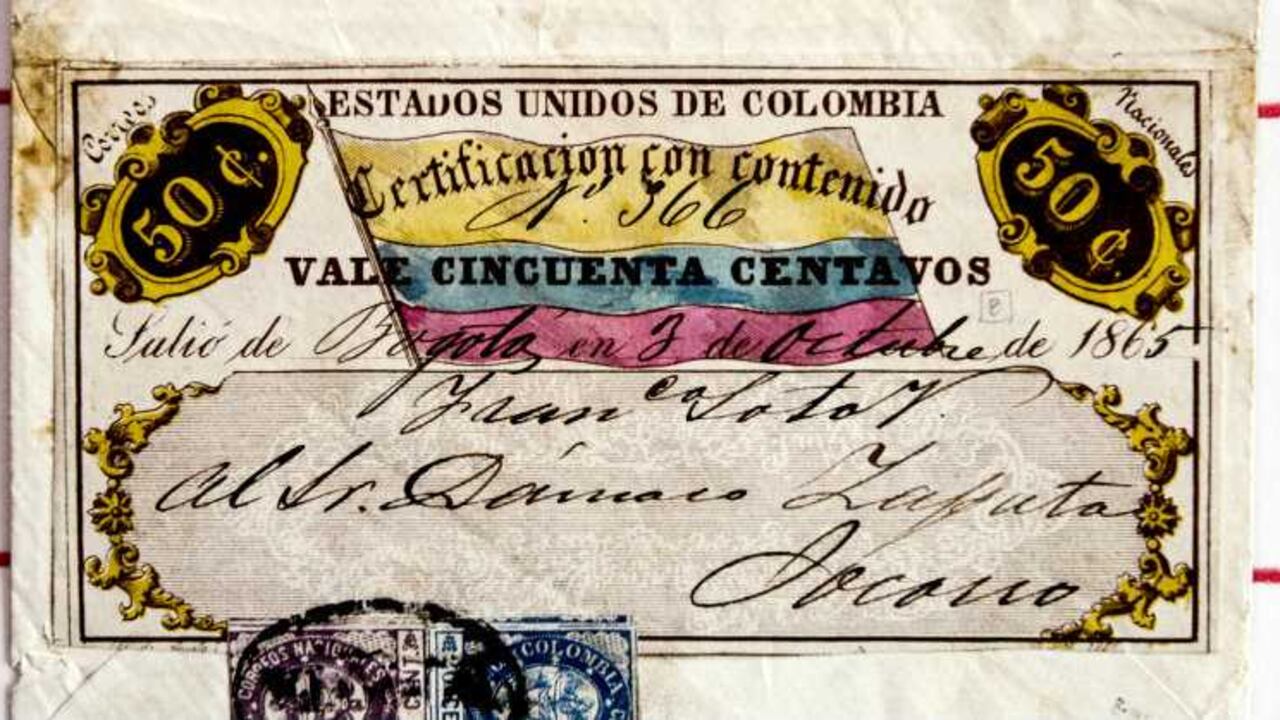 Correos
Nacionales
ESTADOS UNIDOS DE COLOMBIA
50 ¢
50 ¢
Certificacion con contenido
N.º 366
VALE CINCUENTA CENTAVOS
Salió de Bogotá, en 3 de Octubre de 1865
Fran.co Soto V.
Al Sr. Dámaso Zapata
Socorro
CORREOS NACIONALES
CENT
COLOMBIA